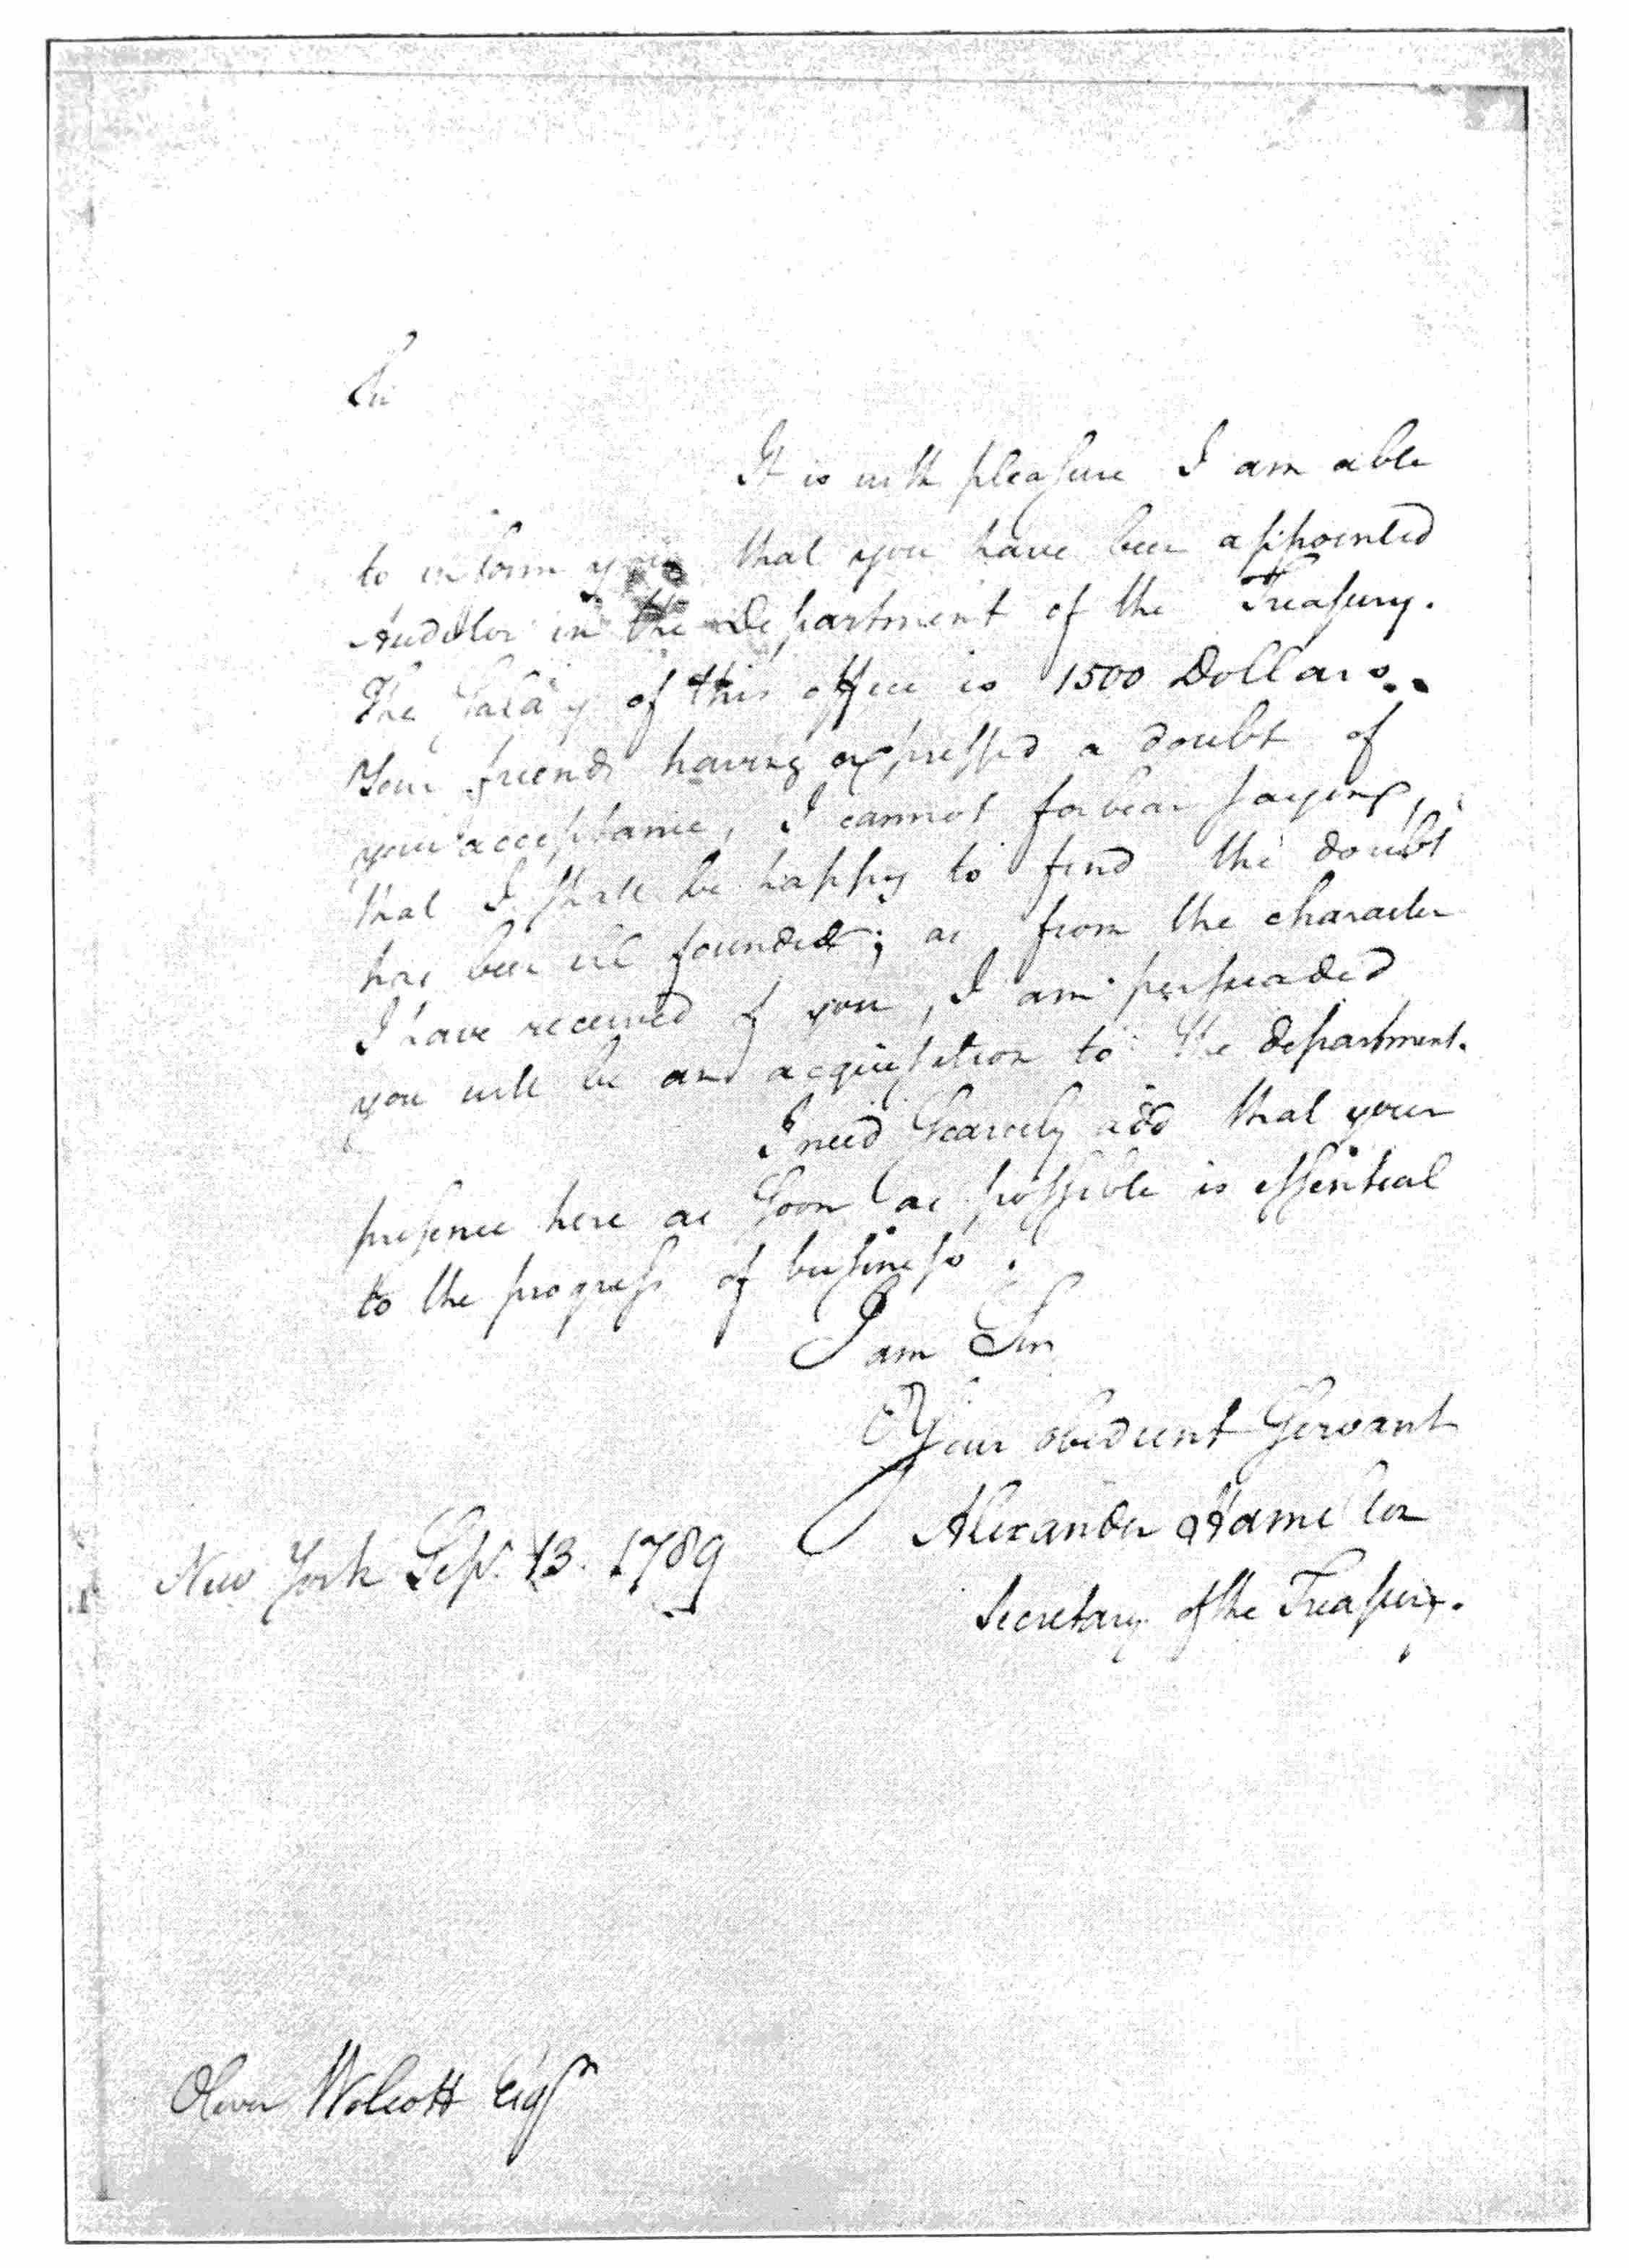 Sir
It is with pleasure I am able
to inform you that you have been appointed
Auditor in the Department of the Treasury.
The Salary of this office is 1500 Dollars.
Your friends having expressed a doubt of
your acceptance, I cannot forbear saying,
that I shall be happy to find the doubt
has been ill founded; as from the character
I have received of you, I am persuaded
you will be an acquisition to the department.
I need scarcely add that your
presence here as soon as possible is essential
to the progress of business.
I am Sir
Your obedient Servant
Alexander Hamilton
New York Sepr. 13. 1789
Secretary of the Treasury.
Oliver Wolcott Esqr